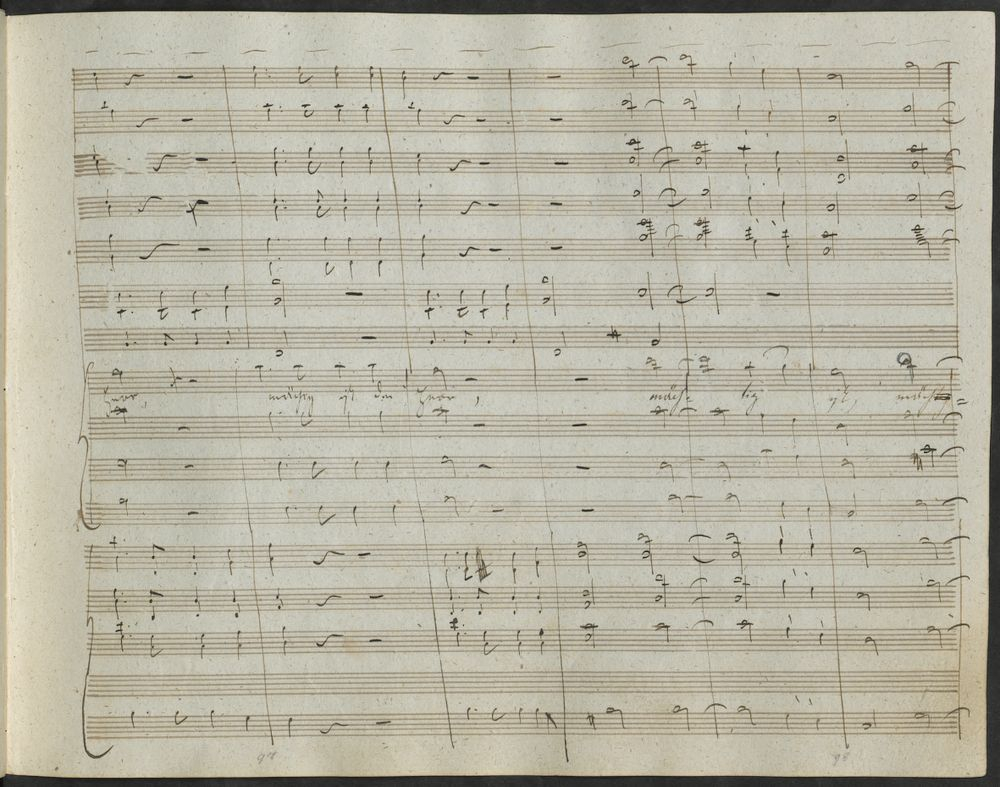 Herr, mächtig ist der Herr, mäch- tig ist, mächtig=
97 98